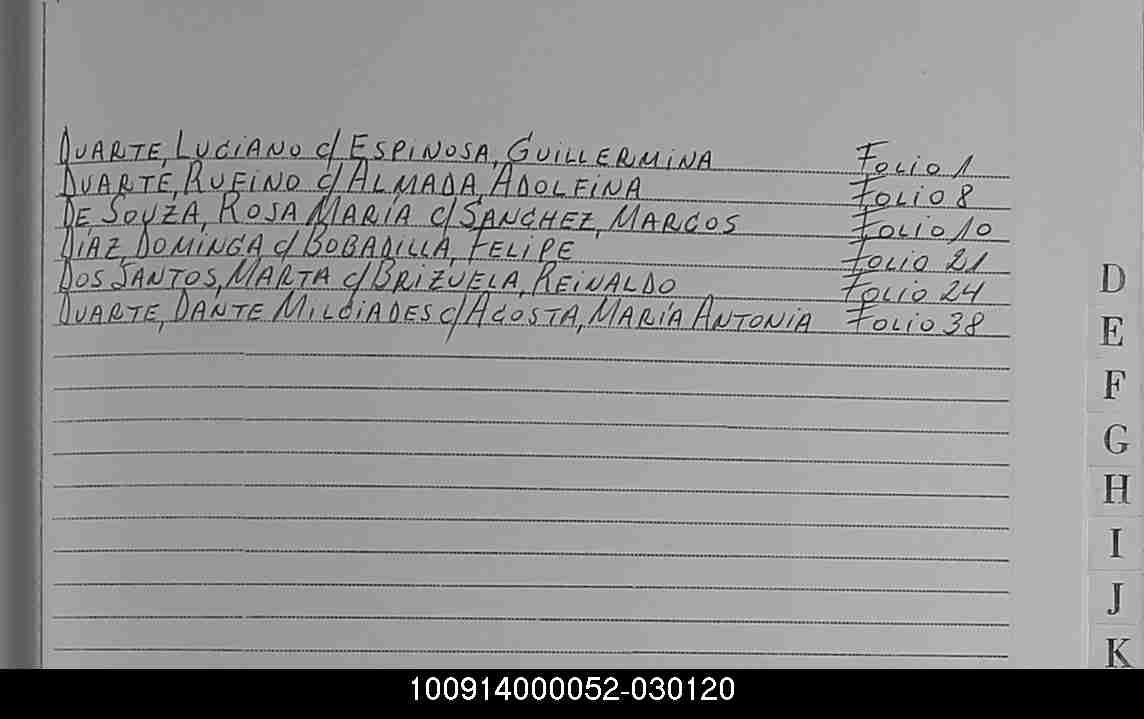 DUARTE, LUCIANO c/ ESPINOSA, GUILLERMINA FOLIO 1
DUARTE, RUFINO c/ ALMADA, ADOLFINA FOLIO 8
DE SOUZA, ROSA MARÍA c/ SANCHEZ, MARCOS FOLIO 10
DÍAZ, DOMINGA c/ BOBADILLA, FELIPE FOLIO 21
DOS SANTOS, MARTA c/ BRIZUELA, REINALDO FOLIO 24
DUARTE, DANTE MILCIADES c/ ACOSTA, MARÍA ANTONIA FOLIO 38
D
E
F
G
H
I
J
K
100914000052-030120